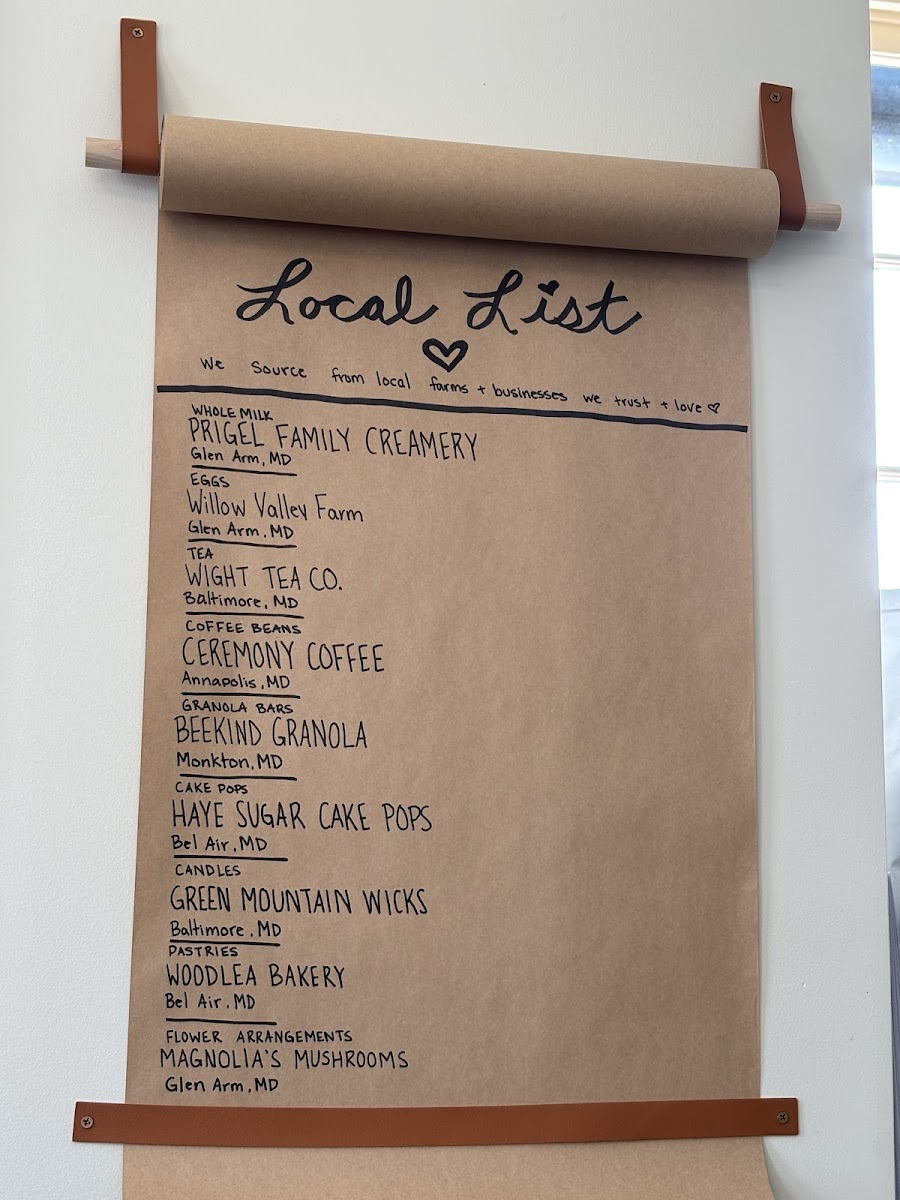 Local List
We Source from local farms + businesses we trust + love ♡
WHOLE MILK
PRIGEL FAMILY CREAMERY
Glen Arm, MD
EGGS
Willow Valley Farm
Glen Arm, MD
TEA
WIGHT TEA CO.
Baltimore, MD
COFFEE BEANS
CEREMONY COFFEE
Annapolis, MD
GRANOLA BARS
BEEKIND GRANOLA
Monkton, MD
CAKE POPS
HAYE SUGAR CAKE POPS
Bel Air, MD
CANDLES
GREEN MOUNTAIN WICKS
Baltimore, MD
PASTRIES
WOODLEA BAKERY
Bel Air, MD
FLOWER ARRANGEMENTS
MAGNOLIA'S MUSHROOMS
Glen Arm, MD